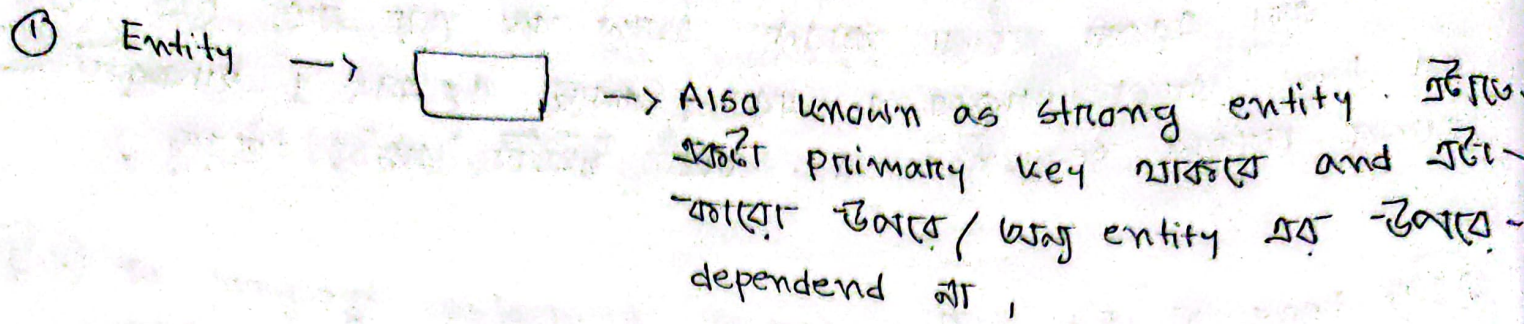 ① Entity → → Also known as strong entity. এটাতে
একটা primary key থাকবে and এটা
কারো উপরে / অন্য entity এর উপরে
dependend না,